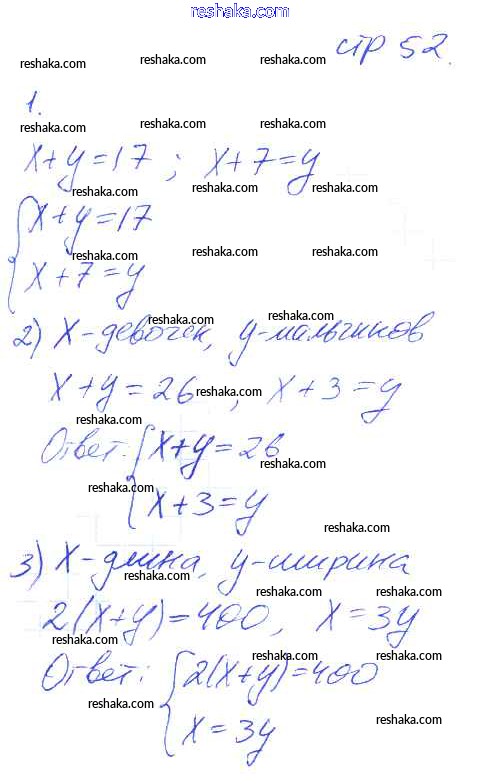 reshaka.com
стр 52.
reshaka.com reshaka.com reshaka.com
1.
reshaka.com reshaka.com reshaka.com
x+y=17 ; x+7=y
reshaka.com reshaka.com
x+y=17
reshaka.com reshaka.com reshaka.com
x+7=y
reshaka.com reshaka.com
2) x-девочек, y-мальчиков
x+y=26 , x+3=y
reshaka.com
reshaka.com
Ответ: x+y=26
reshaka.com
reshaka.com
x+3=y
reshaka.com
3) x-длина, y-ширина
reshaka.com
reshaka.com
2(x+y)=400, x=3y
reshaka.com
reshaka.com reshaka.com
Ответ: 2(x+y)=400
reshaka.com
x=3y
reshaka.com